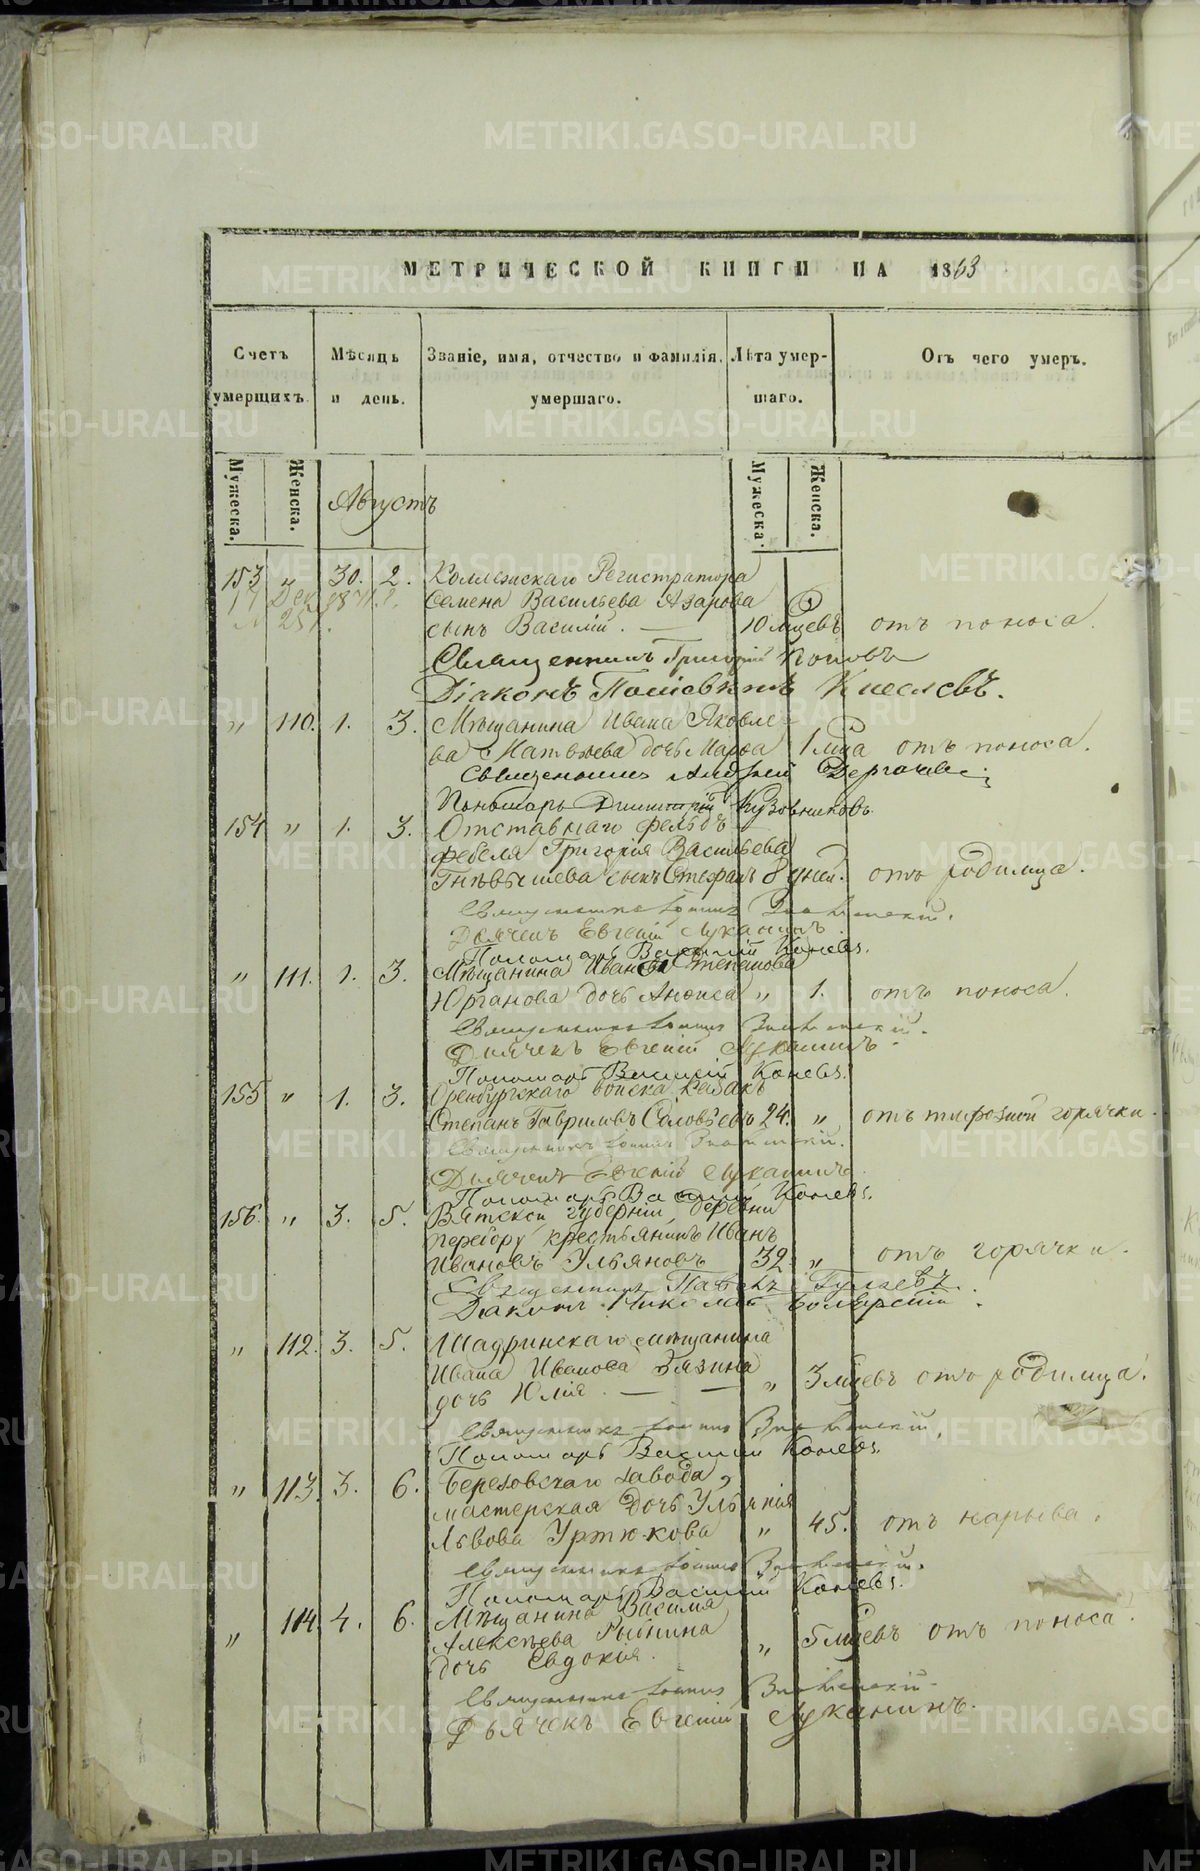 МЕТРИЧЕСКОЙ КНИГИ НА 1863
Счетъ умерщихъ.
Мѣсяцъ и день.
Званіе, имя, отчество и фамилія умершаго.
Лѣта умершаго.
Отъ чего умеръ.
Мужеска. Женска. Августъ Мужеска. Женска.
153 30. 2. Коллежскаго Регистратора
Семена Васильева Азарова
сынъ Василій. — 10 мцевъ отъ поноса.
Священникъ Григорій Поповъ
Діаконъ Киселевъ.
„ 110. 1. 3. Мѣщанина Ивана Яковле
ва Матвѣева дочь Марѳа 1 мца отъ поноса.
Священникъ Андрей Дергачевъ
Пономарь Димитрій Кузовниковъ
154 „ 1. 3. Отставнаго фельдъ
фебеля Григорія Васильева
Гнѣвышева сынъ Стефанъ 8 дней. отъ родимца.
Священникъ Іоаннъ Знаменскій.
Дьячекъ Евгеній Луканинъ.
Пономарь Василій Коневъ.
„ 111. 1. 3. Мѣщанина Ивана Степанова
Юрганова дочь Анѳиса „ 1. отъ поноса.
Священникъ Іоаннъ Знаменскій.
Дьячекъ Евгеній Луканинъ.
Пономарь Василій Коневъ.
155 „ 1. 3. Оренбургскаго войска казакъ
Степанъ Гавриловъ Соловьевъ 24. „ отъ тифозной горячки.
Священникъ Іоаннъ Знаменскій.
Дьячекъ Евгеній Луканинъ.
Пономарь Василій Коневъ.
156. „ 3. 5. Вятской губерніи, деревни
перебору крестьянинъ Иванъ
Ивановъ Ульяновъ 32. „ отъ горячки.
Священникъ Павелъ Гуляевъ.
Діаконъ Николай
„ 112. 3. 5. Шадринскаго мѣщанина
Ивана Иванова Зязина
дочь Юлія. — — „ 3 мцевъ отъ родимца.
Священникъ Іоаннъ Знаменскій.
Пономарь Василій Коневъ.
„ 113. 3. 6. Березовскаго завода,
мастерская дочь Ульянія
Львова Уртюкова „ 45. отъ нарыва.
Священникъ Іоаннъ Знаменскій.
Пономарь Василій Коневъ.
„ 114. 4. 6. Мѣщанина Василія
Алексѣева Рыбнина
дочь Евдокія. „ 5 мцевъ отъ поноса.
Священникъ Іоаннъ Знаменскій.
Дьячекъ Евгеній Луканинъ.
METRIKI.GASO-URAL.RU